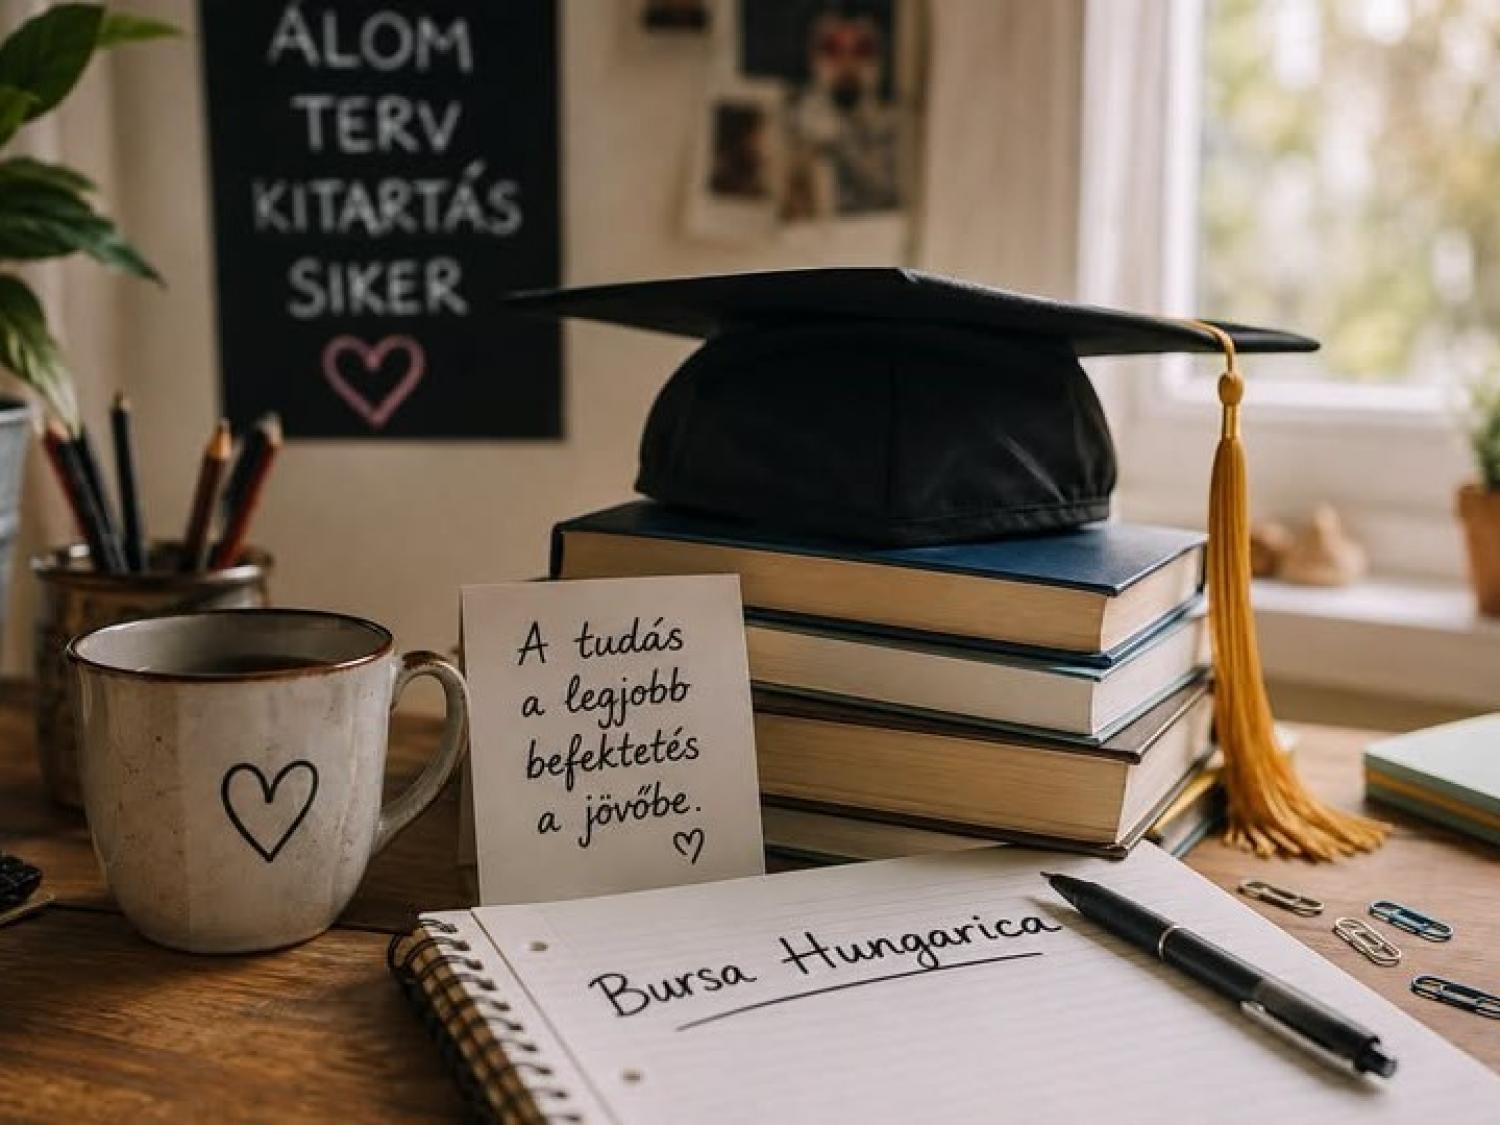 ÁLOM
TERV
KITARTÁS
SIKER
A tudás
a legjobb
befektetés
a jövőbe.
Bursa Hungarica